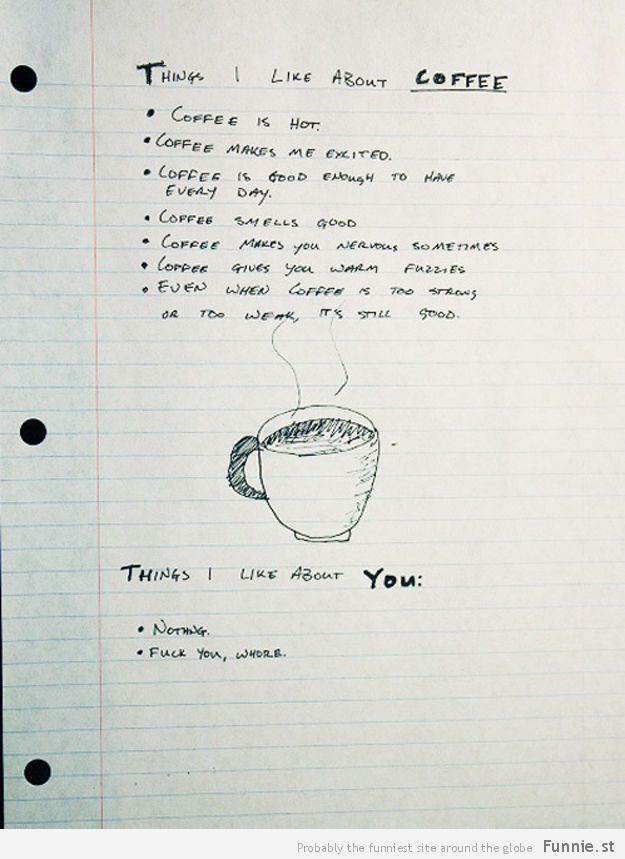 THINGS I LIKE ABOUT COFFEE
• COFFEE IS HOT.
• COFFEE MAKES ME EXCITED.
• COFFEE IS GOOD ENOUGH TO HAVE
EVERY DAY.
• COFFEE SMELLS GOOD
• COFFEE MAKES YOU NERVOUS SOMETIMES
• COFFEE GIVES YOU WARM FUZZIES
• EVEN WHEN COFFEE IS TOO STRONG
OR TOO WEAK, IT'S STILL GOOD.
THINGS I LIKE ABOUT YOU:
• NOTHNG.
• FUCK YOU, WHORE.
Probably the funniest site around the globe Funnie.st